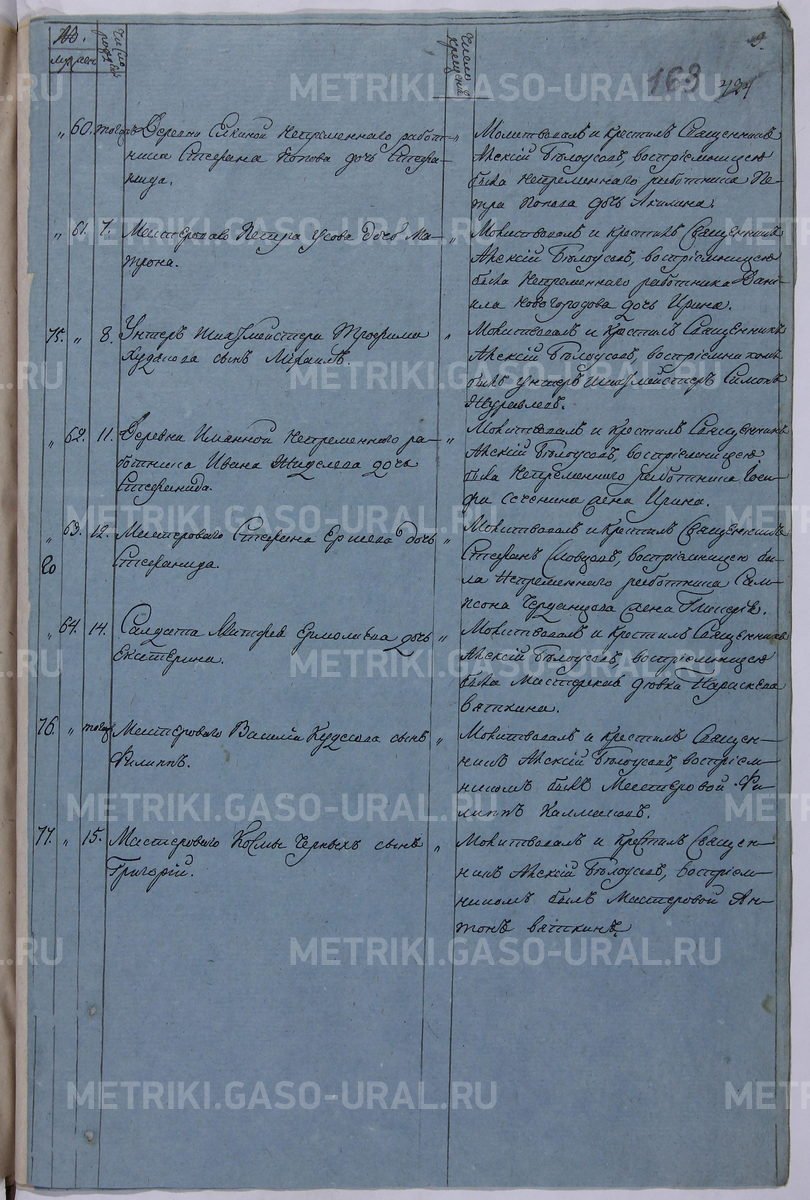 №.
муж жен
Число рождения
Число крещения
163
60. тогоже Деревни Елкиной Непременнаго работ-
ника Стефана Попова дочь Стефа-
нида.
Молитвовалъ и крестилъ Священникъ
Алексій Бѣлоусовъ, воспріемницею
была Непременнаго работника Пе-
тра Попова дочь Акилина.
61. 7. Мастероваго Петра Усова дочь Ма-
трона.
Молитвовалъ и крестилъ Священникъ
Алексій Бѣлоусовъ, воспріемницею
была Непременнаго работника Дани-
ила Новогородова дочь Ирина.
75. 8. Унтеръ Шихтмейстера Трофима
сынъ Михаилъ.
Молитвовалъ и крестилъ Священникъ
Алексій Бѣлоусовъ, воспріемникомъ
былъ Унтеръ Шихтмейстеръ Симонъ
Журавлевъ.
62. 11. Деревни Непременнаго ра-
ботника Ивана дочь
Стефанида.
Молитвовалъ и крестилъ Священникъ
Алексій Бѣлоусовъ, воспріемницею
была Непременнаго работника Іоси-
фа жена Ирина.
63. 12. Мастероваго Стефана Ершева дочь
20 Стефанида.
Молитвовалъ и крестилъ Священникъ
Стефанъ Словцовъ, воспріемницею бы-
ла Непременнаго работника Сам-
псона Чердынцова жена
64. 14. Салдата Матфея дочь
Екатерина.
Молитвовалъ и крестилъ Священникъ
Алексій Бѣлоусовъ, воспріемницею
была Мастерская дѣвка Параскева
Вяткина.
76. тогоже Мастероваго Василія сынъ
Филиппъ.
Молитвовалъ и крестилъ Священ-
никъ Алексій Бѣлоусовъ, воспріем-
никомъ былъ Мастеровой Фи-
липпъ
77. 15. Мастероваго Космы Черныхъ сынъ
Григорій.
Молитвовалъ и крестилъ Священ-
никъ Алексій Бѣлоусовъ, воспріем-
никомъ былъ Мастеровой Ан-
тонъ Вяткинъ.
METRIKI.GASO-URAL.RU